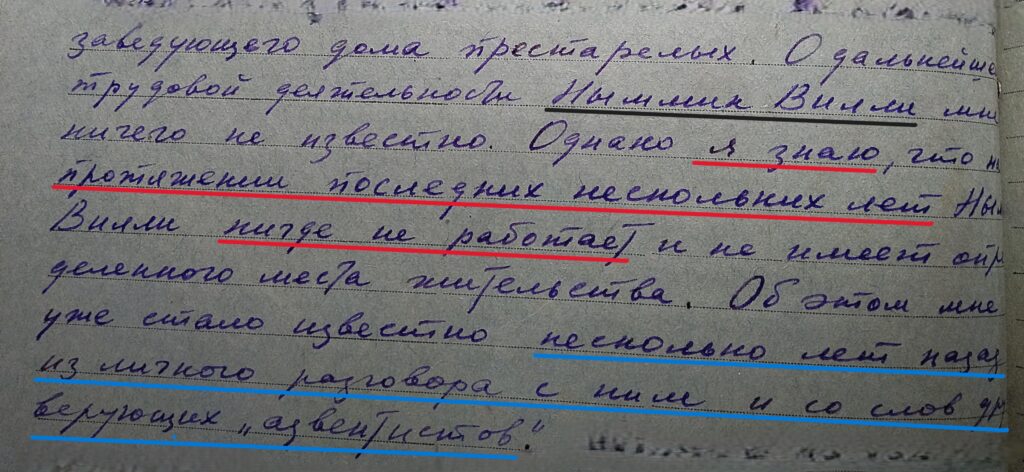 заведующего дома престарелых. О дальнейше
трудовой деятельности Ныммик Вилли мне
ничего не известно. Однако я знаю, что н
протяжении последних нескольких лет Ным
Вилли нигде не работает и не имеет опр
деленного места жительства. Об этом мне
уже стало известно несколько лет назад
из личного разговора с ним и со слов др
верующих „адвентистов".